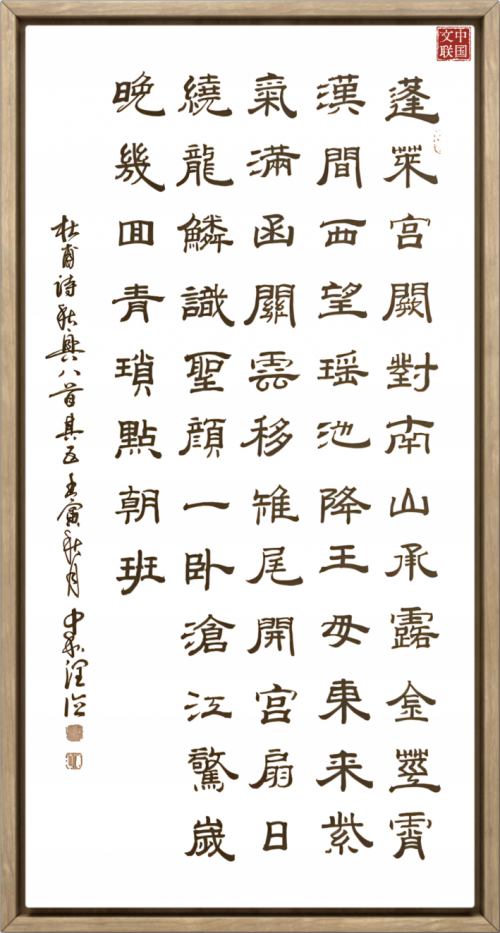 中国文联
蓬萊宫闕對南山承露金莖霄
漢間西望瑶池降王母東来紫
氣滿函關雲移雉尾開宫扇日
繞龍鱗識聖顔一卧滄江驚歲
晚幾回青瑣點朝班
杜甫詩秋興八首其五壬寅秋月